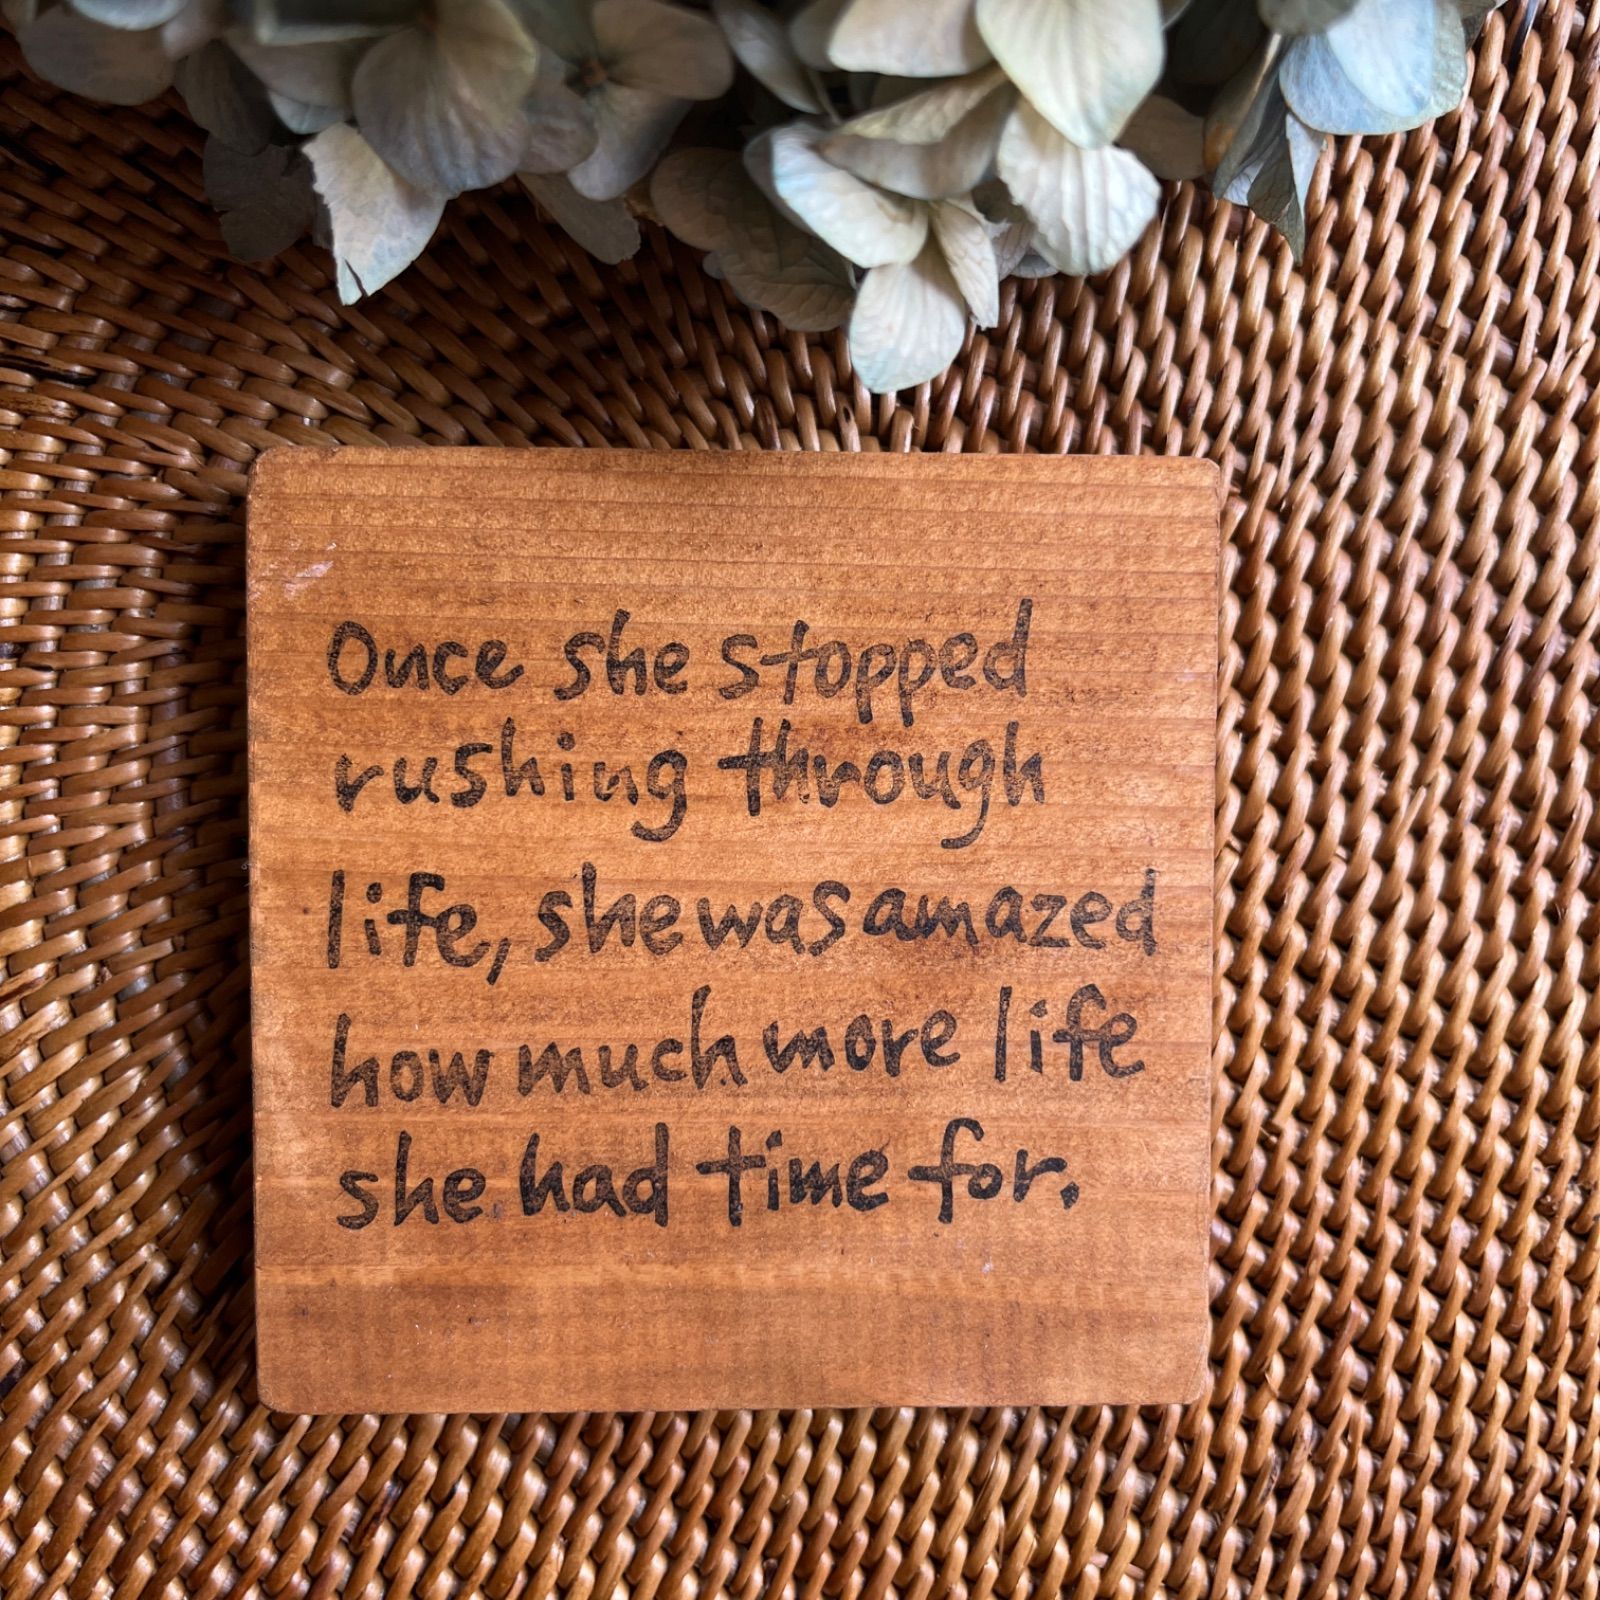 Once she stopped
rushing through
life, she was amazed
how much more life
she had time for.